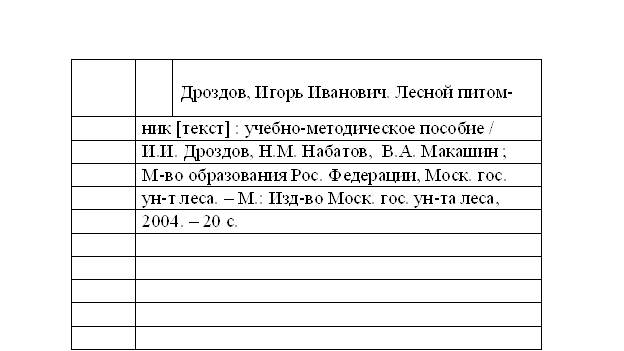 Дроздов, Игорь Иванович. Лесной питом-
ник [текст] : учебно-методическое пособие /
И.И. Дроздов, Н.М. Набатов, В.А. Макашин ;
М-во образования Рос. Федерации, Моск. гос.
ун-т леса. – М.: Изд-во Моск. гос. ун-та леса,
2004. – 20 с.